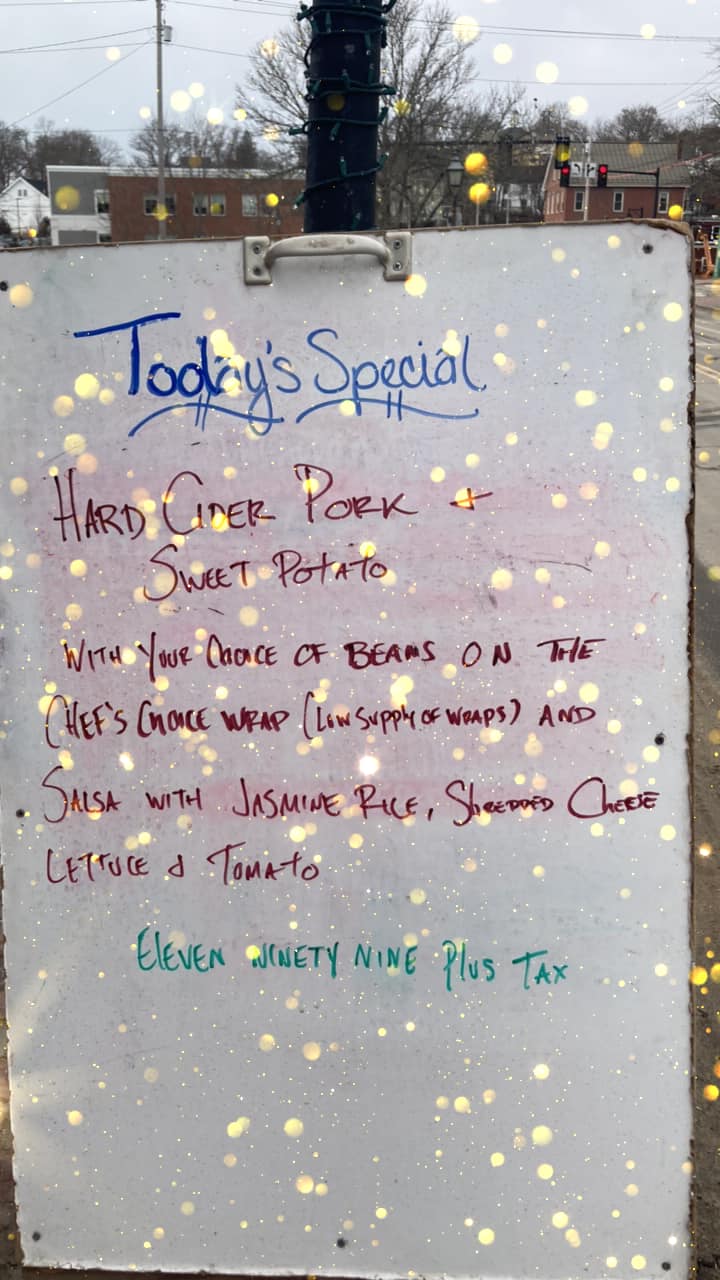 Today's Special
HARD CIDER PORK +
SWEET POTATO
WITH YOUR CHOICE OF BEANS ON THE
CHEF'S CHOICE WRAP (LOW SUPPLY OF WRAPS) AND
SALSA WITH JASMINE RICE, SHREDDED CHEESE
LETTUCE & TOMATO
ELEVEN NINETY NINE PLUS TAX